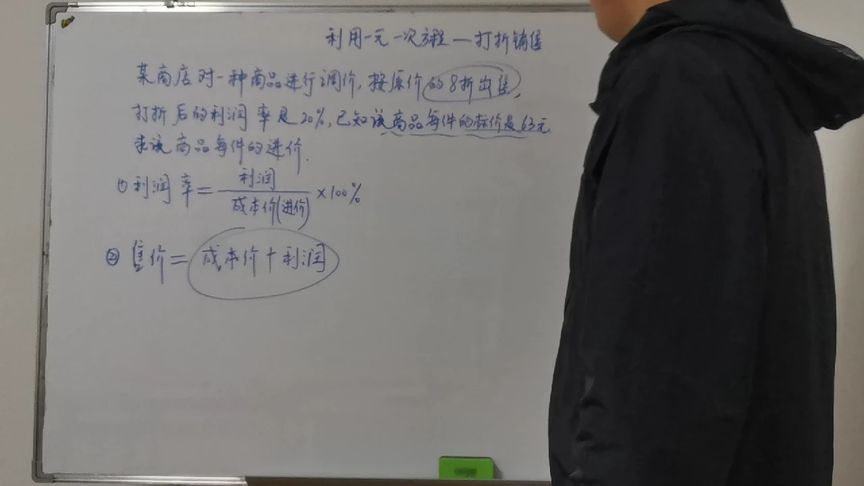 利用一元一次方程—打折销售
某商店对一种商品进行调价,按原价的8折出售,
打折后的利润率是20%,已知该商品每件的标价是63元
求该商品每件的进价.
① 利润率=利润/成本价(进价)×100%
② 售价=成本价+利润